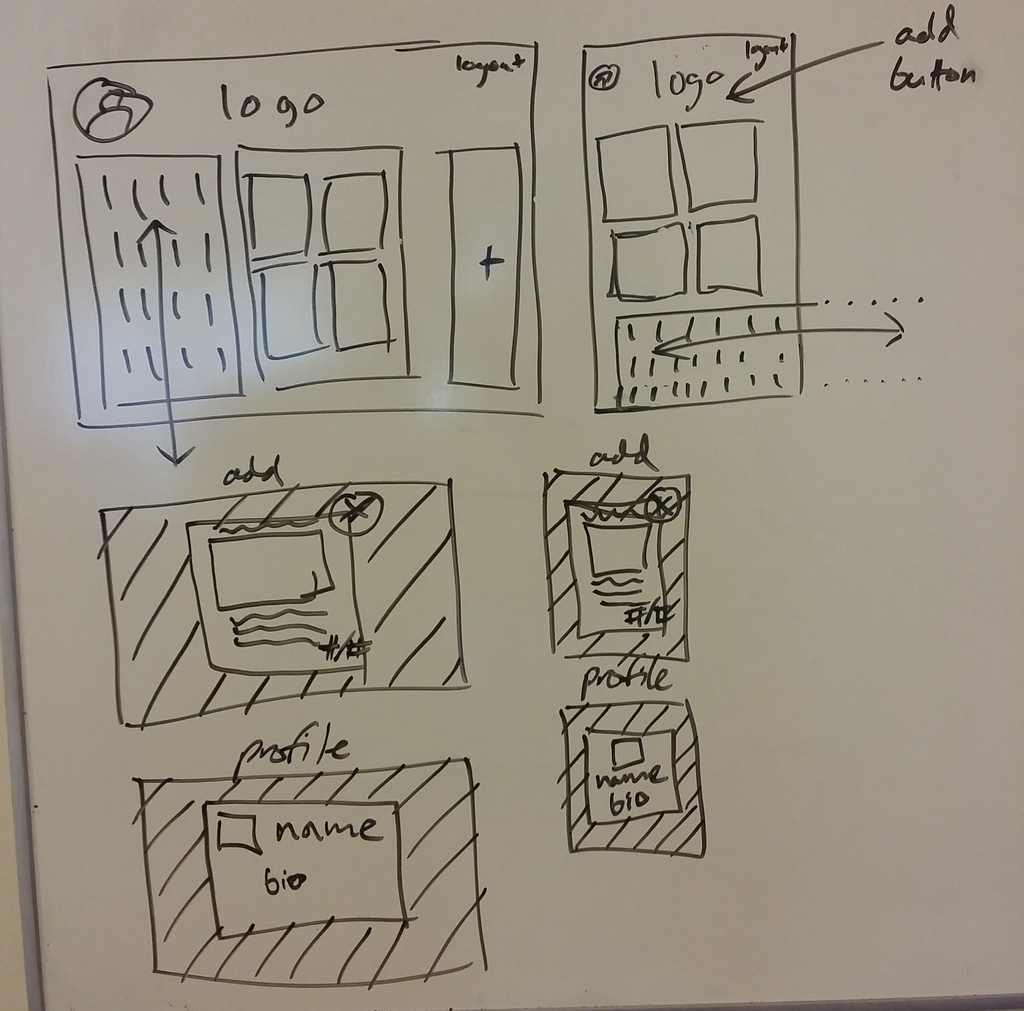 logout
logo
+
logout
logo
add
button
add
#/#
add
#/#
profile
name
bio
profile
name
bio